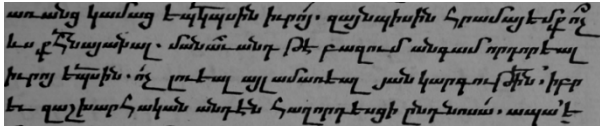 առանց կամաց եպկպսին իւրոյ. զայնպիսին հրամայեմք ոչ
ևս քհնայանալ. մանաւանդ թէ բազում անգամ որդորեալ
իւրոյ եպսին. ոչ լուեալ այլ ամառեալ յան կարգութին. իբր
եւ զաշխարհական անդէն հաղորդեսցի ընդնոսա. ապա է